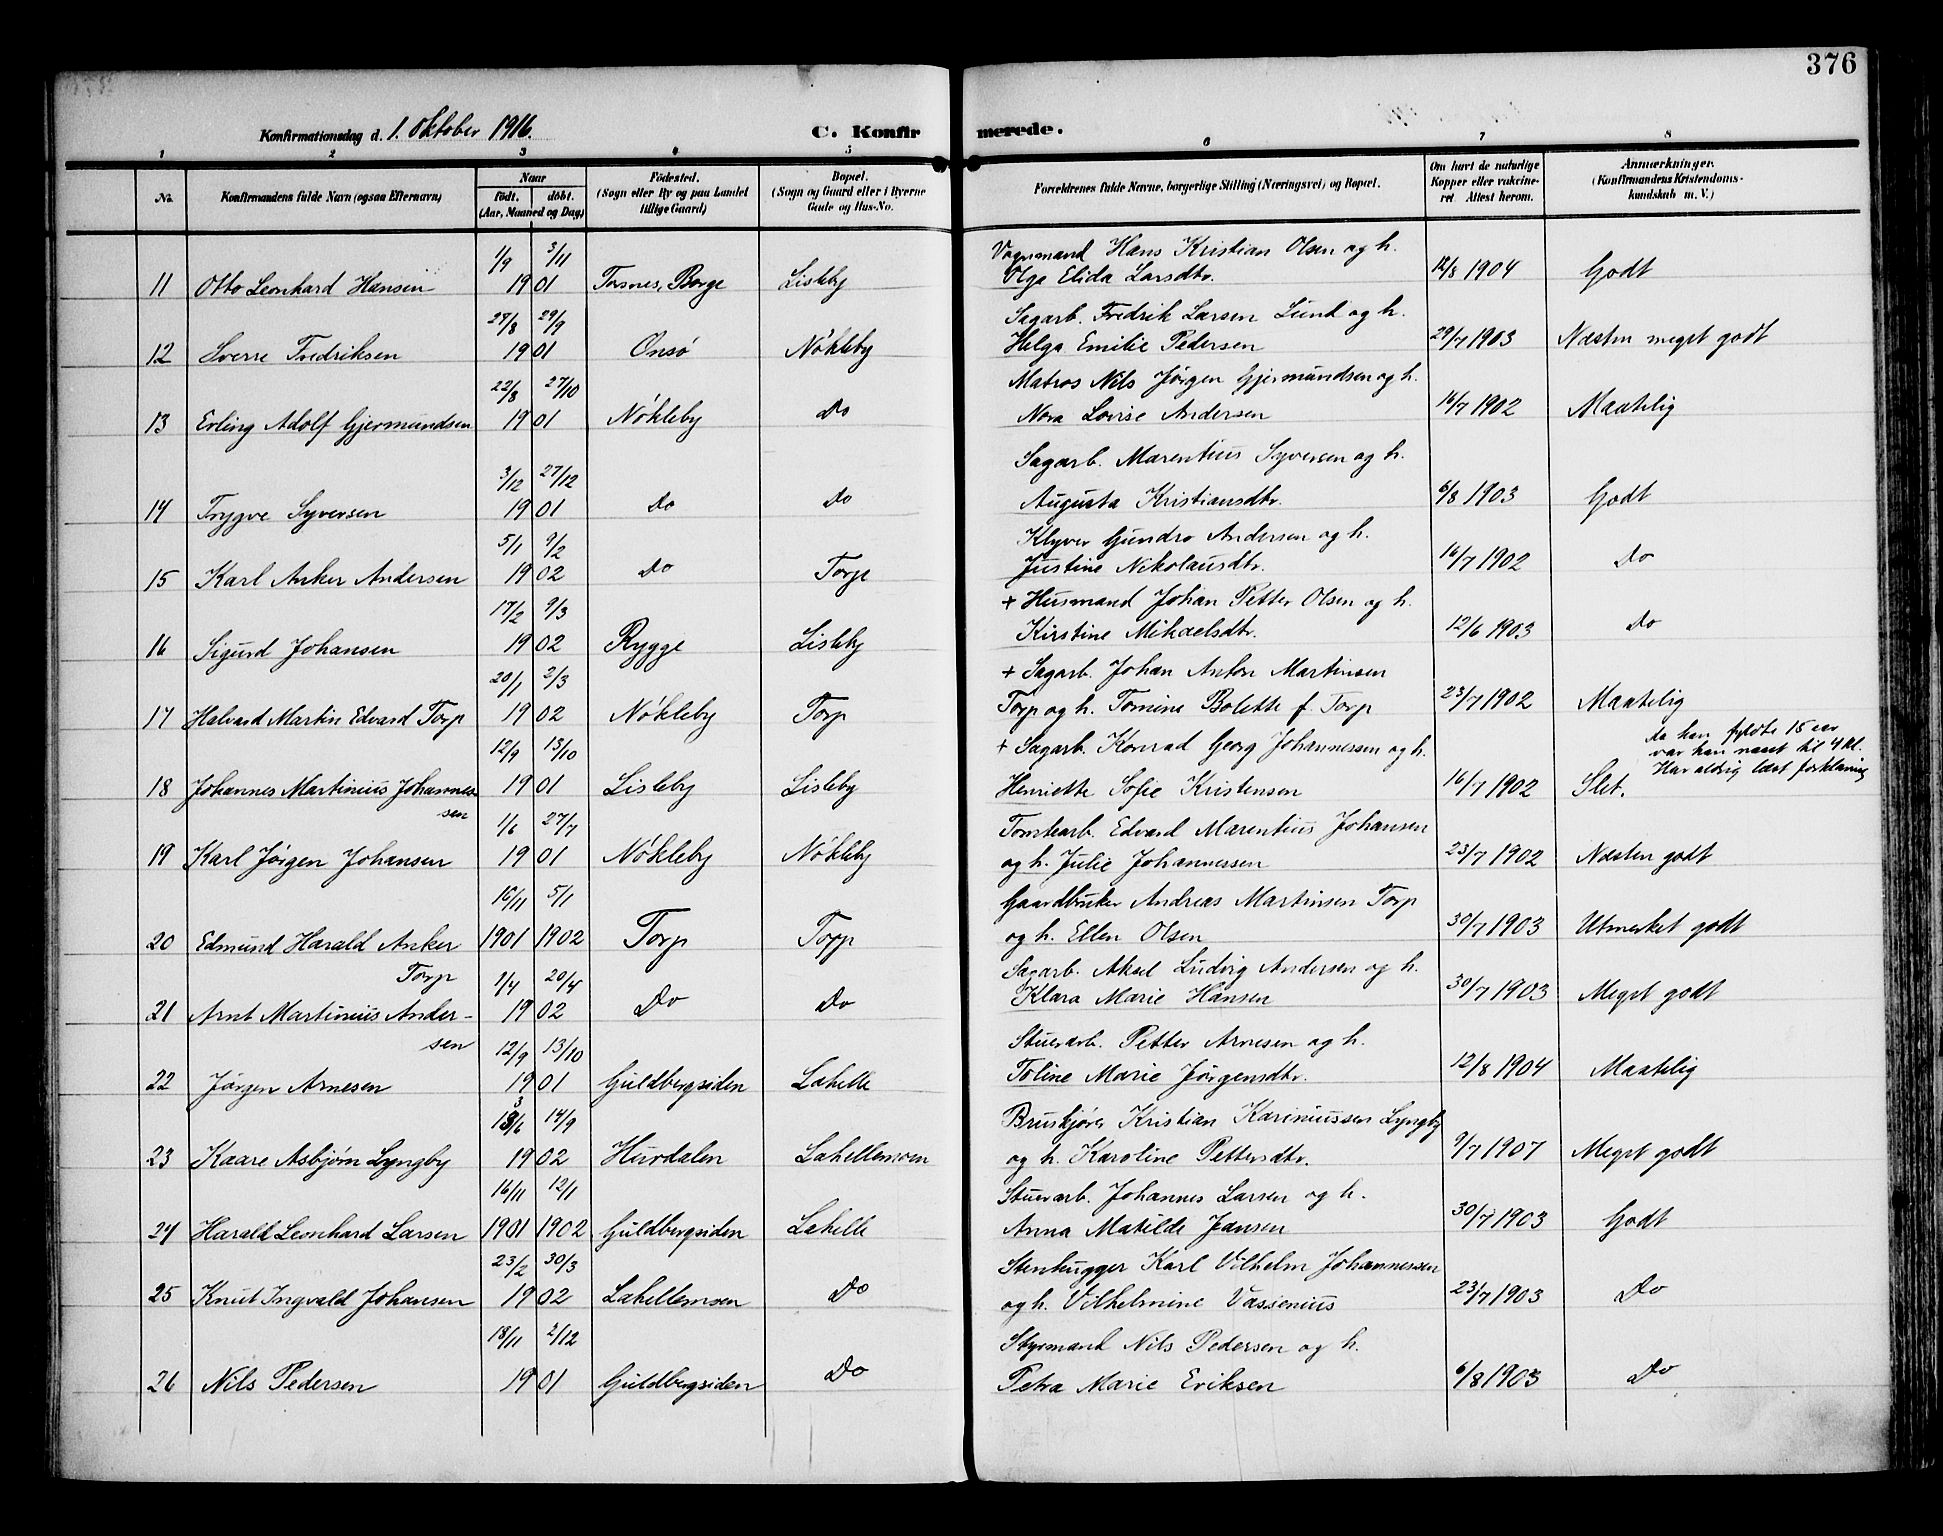 376
Konfirmationsdag d. 1. Oktober 1916.
C. Konfirmerede.
1 2 3 4 5 6 7 8
No. Konfirmandens fulde Navn (ogsaa Efternavn) Naar födt. döbt. (Aar, Maaned og Dag) Födested. (Sogn eller By og paa Landet tillige Gaard) Bopæl. (Sogn og Gaard eller i Byerne Gade og Hus-No. Forældrenes fulde Navne, borgerlige Stilling (Næringsvei) og Bopæl. Om havt de naturlige Kopper eller vakcineret. Attest herom. Anmærkninger. (Konfirmandens Kristendomskundskab m. V.)
1/9 3/11 Vognmand Hans Kristian Olsen og h.
11 Otto Leonhard Hansen 1901 Torsnes, Borge Lisleby Olga Elida Larsdtr. 12/8 1904 Godt
27/8 29/9 Sagarb. Fredrik Larsen Lund og h.
12 Sverre Fredriksen 1901 Onsö Nökleby Helga Emilie Pedersen 29/7 1903 Næsten meget godt
22/8 27/10 Matros Nils Jörgen Gjermundsen og h.
13 Erling Adolf Gjermundsen 1901 Nökleby Do Nora Lovise Andersen 16/7 1902 Maatelig
3/12 27/12 Sagarb. Marentius Syversen og h.
14 Trygve Syversen 1901 Do Do Augusta Kristiansdtr. 6/8 1903 Godt
5/1 9/2 Klyver Gundro Andersen og h.
15 Karl Anker Andersen 1902 Do Torp Justine Nikolausdtr. 16/7 1902 Do
17/2 9/3 + Husmand Johan Petter Olsen og h.
16 Sigurd Johansen 1902 Rygge Lisleby Kirstine Mikaelsdtr. 12/6 1903 Do
20/1 2/3 + Sagarb. Johan Anton Martinsen
17 Halvard Martin Edvard Torp 1902 Nökleby Torp Torp og h. Tomine Bolette f. Torp 23/7 1902 Maatelig
12/9 13/10 + Sagarb. Konrad Georg Johannessen og h. Da han fyldte 15 aar
var han naaet til 4 kl.
Har aldrig læst forklaring
18 Johannes Martinius Johannes- 1901 Lisleby Lisleby Henriette Sofie Kristensen 16/7 1902 Slet.
sen
1/6 27/7 Tomtearb. Edvard Marentius Johansen
19 Karl Jörgen Johansen 1901 Nökleby Nökleby og h. Julie Johannessen 23/7 1902 Næsten godt
16/11 5/1 Gaardbruker Andreas Martinsen Torp
20 Edmund Harald Anker 1901 1902 Torp Torp og h. Ellen Olsen 30/7 1903 Utmerket godt
Torp
1/4 20/4 Sagarb. Aksel Ludvig Andersen og h.
21 Arnt Martinius Ander- 1902 Do Do Klara Marie Hansen 30/7 1903 Meget godt
sen
12/9 13/10 Stuerarb. Petter Arnesen og h.
22 Jörgen Arnesen 1901 Guldbergsiden Lahelle Toline Marie Jörgensdtr. 12/8 1904 Maatelig
14/9 Bruskjörer Kristian Kariniussen Lyngby
23 Kaare Asbjörn Lyngby 1902 Hurdalen Lahellemoen og h. Karoline Pettersdtr. 9/7 1907 Meget godt
16/11 12/1 Stuerarb. Johannes Larsen og h.
24 Harald Leonhard Larsen 1901 1902 Guldbergsiden Lahelle Anna Matilde Jansen 30/7 1903 Godt
23/2 30/3 Stenhugger Karl Vilhelm Johannessen
25 Knut Ingvald Johansen 1902 Lahellemoen Do og h. Vilhelmine Vassenius 23/7 1903 Do
18/11 2/12 Styrmand Nils Pedersen og h.
26 Nils Pedersen 1901 Guldbergsiden Do Petra Marie Eriksen 6/8 1903 Do